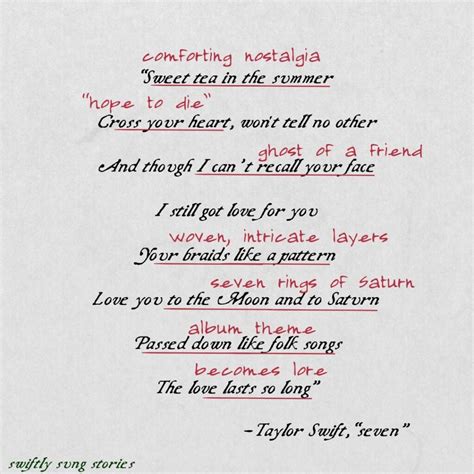 comforting nostalgia
"Sweet tea in the summer
"hope to die"
Cross your heart, won't tell no other
ghost of a friend
And though I can't recall your face
I still got love for you
woven, intricate layers
Your braids like a pattern
seven rings of Saturn
Love you to the Moon and to Saturn
album theme
Passed down like folk songs
becomes lore
The love lasts so long"
-Taylor Swift, "seven"
swiftly sung stories